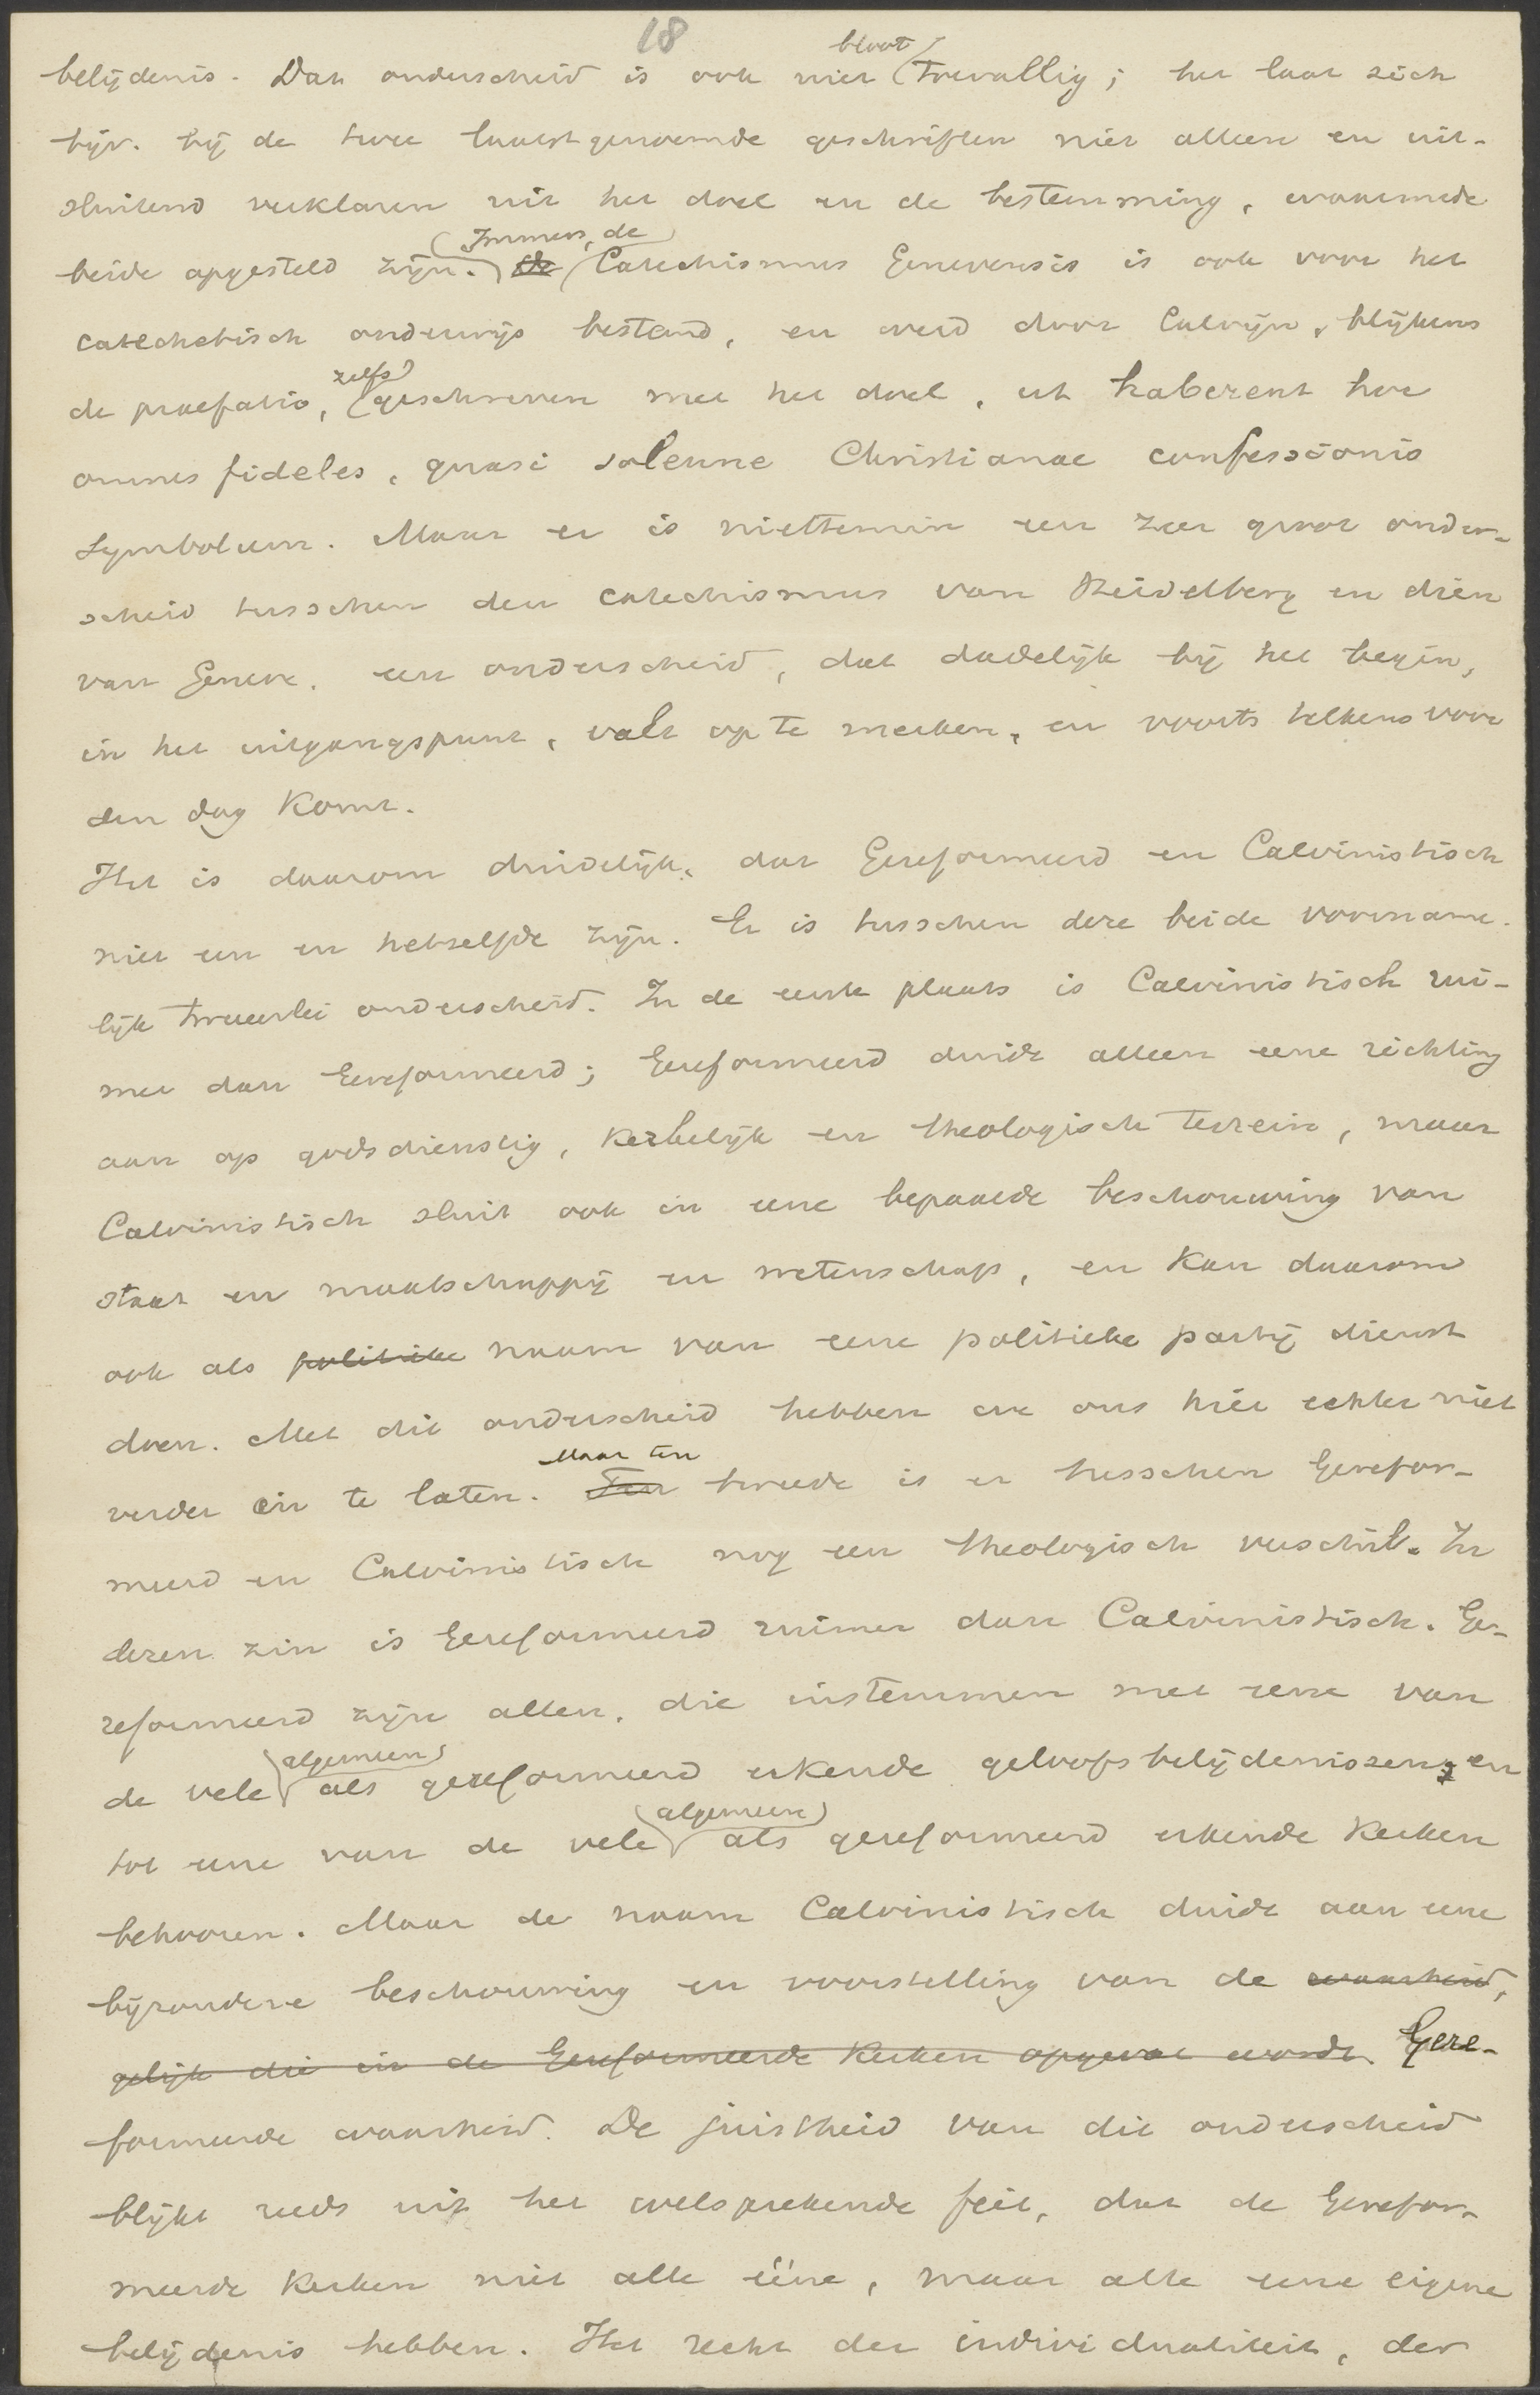 18
bloot
belijdenis. Dat onderscheid is ook niet toevallig; het laat zich
bijv. bij de twee laatstgenoemde geschriften niet alleen en uit-
sluitend verklaren uit het doel en de bestemming, waarmede
Immers, de
beide opgesteld zijn. De Catechismus Genevensis is ook voor het
catechetisch onderwijs bestemd, en werd door Calvijn, blijkens
zelfs
de praefatio, geschreven met het doel, ut haberent hoc
omnes fideles, quasi solenne Christianae confessionis
symbolum. Maar er is niettemin een zeer groot onder-
scheid tusschen den catechismus van Heidelberg en dien
van Geneve, een onderscheid, dat dadelijk bij het begin,
in het uitgangspunt, valt op te merken, en voorts telkens voor
den dag komt.
Het is daarom duidelijk, dat Gereformeerd en Calvinistisch
niet een en hetzelfde zijn. Er is tusschen deze beide voorname-
lijk tweeerlei onderscheid. In de eerste plaats is Calvinistisch rui-
mer dan Gereformeerd; Gereformeerd duidt alleen eene richting
aan op godsdienstig, kerkelijk en theologisch terrein, maar
Calvinistisch sluit ook in eene bepaalde beschouwing van
staat en maatschappij en wetenschap, en kan daarom
ook als politieke naam van eene politieke partij dienst
doen. Met dit onderscheid hebben we ons hier echter niet
Maar ten
verder in te laten. Ten tweede is er tusschen Gerefor-
meerd en Calvinistisch nog een theologisch verschil. In
dezen zin is Gereformeerd ruimer dan Calvinistisch. Ge-
reformeerd zijn allen, die instemmen met eene van
algemeen
de vele als gereformeerd erkende geloofsbelijdenissen, en
algemeen
tot eene van de vele als gereformeerd erkende kerken
behooren. Maar de naam Calvinistisch duidt aan eene
bijzondere beschouwing en voorstelling van de waarheid,
gelijk die in de Gereformeerde kerken opgevat wordt. Gere-
formeerde waarheid. De juistheid van dit onderscheid
blijkt reeds uit het welsprekende feit, dat de Gerefor-
meerde kerken niet alle ééne, maar alle eene eigene
belijdenis hebben. Het recht der individualiteit, der